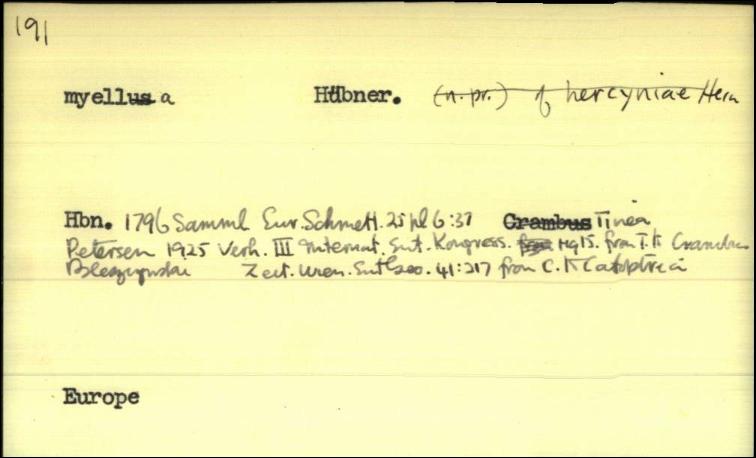 191
myella Hübner. (n.pr.) of hercyniae Hein
Hbn. 1796 Samml Eur. Schmett. 25 pl 6:37 Tinea
Petersen 1925 Verh. III Internat. Ent. Kongress. Hg 15. from T. to Crambus
Bleszynski Zeit. Wien. Ent Ges. 41:217 from C. to Catoptria
Europe